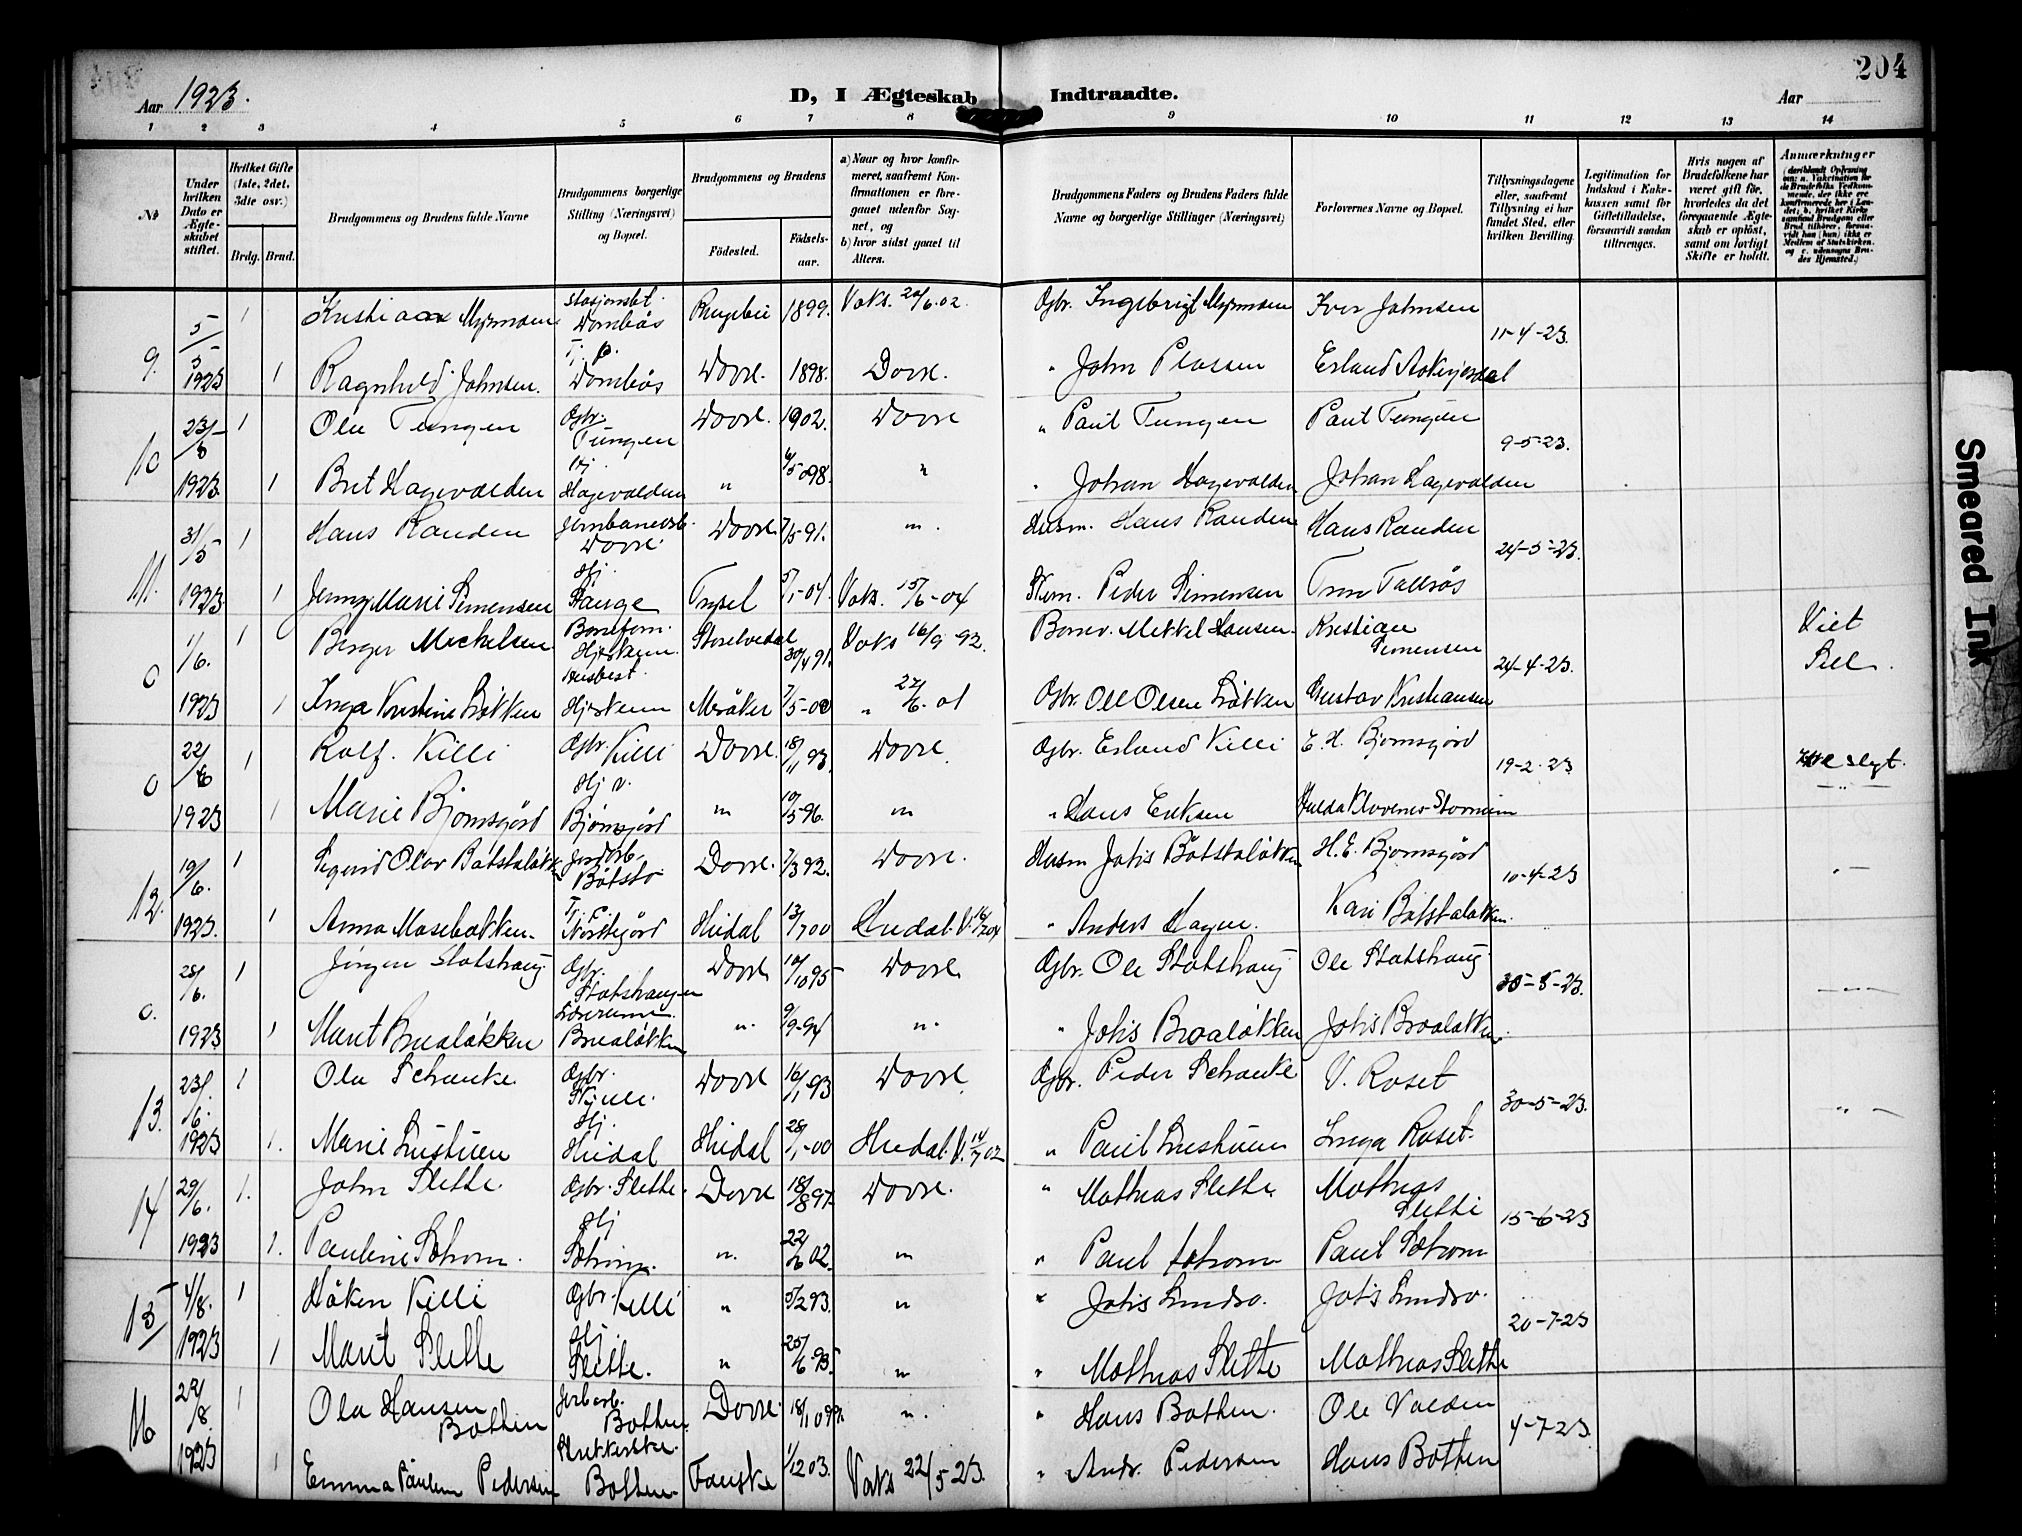 204
Aar 1923.
D, I Ægteskab Indtraadte.
Aar
1 2 3 4 5 6 7 8 9 10 11 12 13 14
№
Under hvilken Dato er Ægteskabet stiftet.
Hvilket Gifte (1ste, 2det, 3die osv.)
Brdg. Brud.
Brudgommens og Brudens fulde Navne
Brudgommens borgerlige Stilling (Næringsvei) og Bopæl.
Brudgommens og Brudens
Födested. Födsels-aar.
a) Naar og hvor konfirmeret, saafremt Konfirmationen er foregaaet udenfor Sognet, og
b) hvor sidst gaaet til Alters.
Brudgommens Faders og Brudens Faders fulde Navne og borgerlige Stillinger (Næringsvei)
Forlovernes Navne og Bopæl.
Tillysningsdagene eller, saafremt Tillysning ei har fundet Sted, efter hvilken Bevilling.
Legitimation for Indskud i Enkekassen samt for Giftetilladelse, forsaavidt saadan tiltrænges.
Hvis nogen af Brudefolkene har været gift för, hvorledes da det foregaaende Ægteskab er oplöst, samt om lovligt Skifte er holdt.
Anmærkninger
9. 5/5 1 Kristian Myrmoen Stasjonsbt. Dombås Ringebu 1899. Vaks. 20/6.02. Gbr. Ingebrigt Myrmoen Iver Johnsen 11-4-23.
1923 1 Ragnhild Johnsen. Tj. p. Dombås Dovre. 1898. Dovre. " John Plassen Erland
10 23/5 1 Ole Tungen Gbr. Tungen Dovre. 1902. Dovre " Paul Tungen Paul Tungen 9-5-23.
1923. 1 Brit Hagevolden Hj. Hagevolden " 4/5 098. " " Johan Hagevolden Johan Hagevolden
11. 31/5 1 Hans Randen Jernbanearb. Dovre. Dovre. 7/5 91. " Husm. Hans Randen Hans Randen 24-5-23.
1923 1 Jenny Marie Simensen Hj. Stange Trysil 5/1-04. Vaks. 15/6-04 Peder Simensen Tron Tallerås
0 1/6. 1 Birger Mickelsen Hjerkinn. Storelvedal 30/4 91. Vaks 16/9 92. Mikkel Hansen. Kristian Simensen 24-4-23. Viet Sel.
1923 1 Inga Kristine Løkken Husbest. Hjerkinn Meråker 7/5-00 " 27/6.01 Gbr. Ole Olsen Løkken Gustav Kristiansen
0 22/6 1 Rolf Killi Gbr. Killi Dovre. 18/11 93. Dovre. Gbr. Erland Killi E. H. Bjørnsgård 19-2-23
1923 1 Marie Bjørnsgård Hj v. Bjørnsgård " 10/5 96. " " Hans Eriksen
12. 19/6. 1 Sigurd Olav Båtstøløkk. Jordarb. Båtstø Dovre. 7/3 92. Dovre. Husm Johs Båtstøløkken H. E. Bjørnsgård 10-4-23
1923. 1 Anna Mosebakken. Tj. p. Heidal 13/7 00 Heidal. V. " Anders Hagen. Kari Båtstøløkken.
0. 28/6. 1 Jørgen Slatshaug Gbr. Slatshaugen Dovre 10/10 95 Dovre Gbr. Ole Slatshaug Ole Slatshaug 30-5-23.
1923 1 Marit Brualøkken Lærerinne. Brualøkken " 9/9-94 " " Johs Brualøkken Johs Brualøkken.
13. 23/6. 1 Ola Schanke Gbr. Dovre 16/1 93 Dovre Gbr. Peder Schanke V. Roset 30-5-23.
1923 1. Marie Lushuen Hj. Heidal Heidal 28/1-00 Heidal. V. 14/7 02 " Paul Lushuen Inga Roset.
14 29/6. 1. John Slette. Gbr. Slette. Dovre 18/8 97. Dovre. " Mathias Slette. Mathias Slette 15-6-23
1923 1. Pauline Sætrom. Hj Sætrom. " 22/6 02. " " Paul Sætrom Paul Sætrom
15 4/8. 1 Håken Killi Gbr. Killi " 5/2 93. " " Johs Lindsø. Johs Lindsø. 20-7-23
1923 1 Marit Slette Hj. Slette. " 25/6 95. " " Mathias Slette Mathias Slette
16 29/8. 1 Ola Hansen Botten Botten Dovre. " " Hans Botten. Ole Volden 4-7-23
1923 1 Emma Pauline Pedersen Botten Fauske 1/12 03. Vaks 22/5 23. " Andr. Pedersen Hans Botten
Smeared Ink